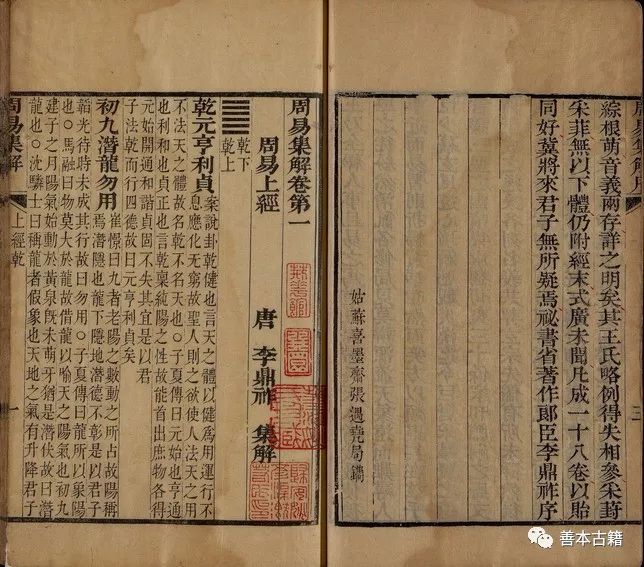 綜根萌音義兩存詳之明矣其王氏略例得失相參采葑
采菲無以下體仍附經末式廣未聞凡成一十八卷以貽
同好冀將來君子無所疑焉祕書省著作郎臣李鼎祚序
姑蘇喜墨齋張遇堯局鐫
周易集解卷第一
周易上經
唐 李鼎祚 集解
乾下
乾上
乾元亨利貞案說卦乾健也言天之體以健爲用運行不
息應化无窮故聖人則之欲使人法天之用
不法天之體故名乾不名天也○子夏傳曰元始也亨通
也利和也貞正也言乾稟純陽之性故能首出庶物各得
元始開通和諧貞固不失其宜是以君
子法乾而行四德故曰元亨利貞矣
初九潛龍勿用崔憬曰九者老陽之數動之所占故陽稱
焉潛隱也龍下隱地潛德不彰是以君子
韜光待時未成其行故曰勿用○子夏傳曰龍所以象陽
也○馬融曰物莫大於龍故借龍以喻天之陽氣也初九
建子之月陽氣始動於黃泉旣未萌牙猶是潛伏故曰潛
龍也○沈驎士曰稱龍者假象也天地之氣有升降君子
周易集解
上經乾
一
善本古籍